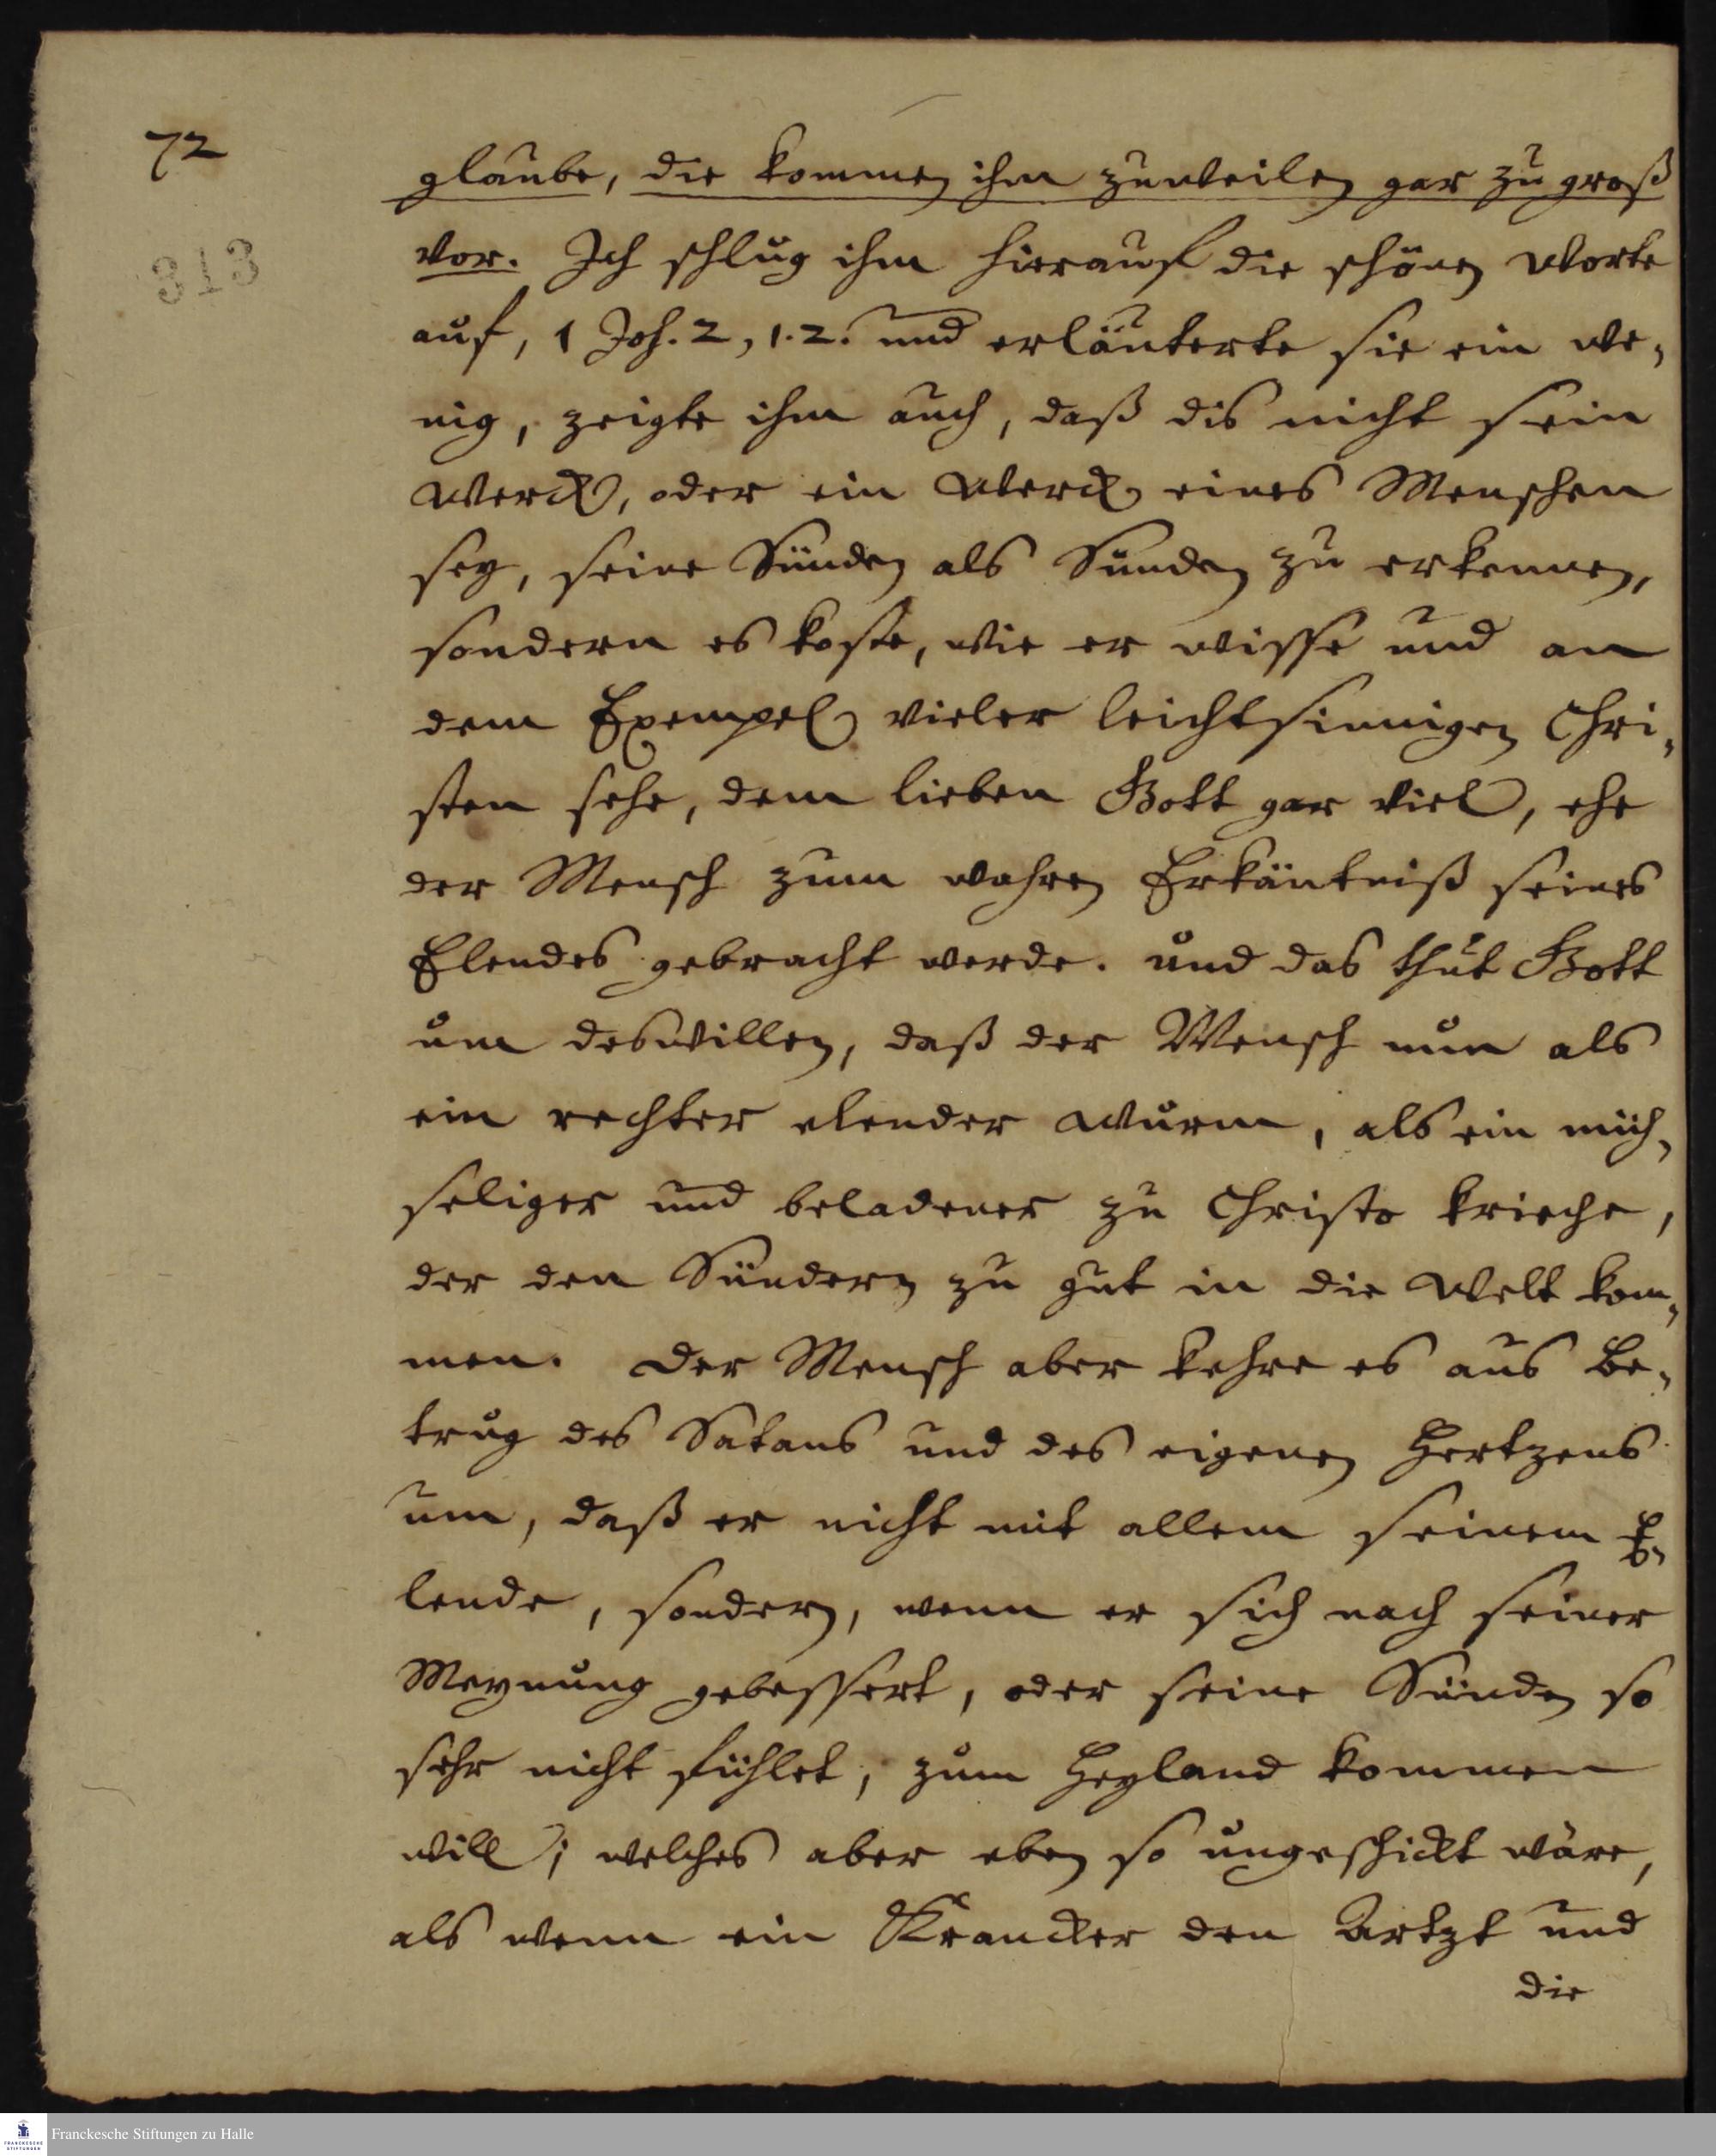 72
313
glaube, die kommen ihm zuweilen gar zu groß
vor. Ich schlug ihm hierauf die schönen Worte
auf, 1 Joh. 2, 1. 2. und erläuterte sie ein we-
nig, zeigte ihm auch, daß dis nicht sein
Werck, oder ein Werck eines Menschen
sey, seine Sünden als Sünden zu erkennen,
sondern es koste, wie er wisse und an
dem Exempel vieler leichtsinnigen Chri-
sten sehe, dem lieben Gott gar viel, ehe
der Mensch zum wahren Erkäntniß seines
Elendes gebracht werde. und das thut Gott
um deswillen, daß der Mensch nun als
ein rechter elender Wurm, als ein müh-
seliger und beladener zu Christo krieche,
der den Sündern zu gut in die Welt kom-
men. Der Mensch aber kehre es aus Be-
trug des Satans und des eigenen Hertzens
um, daß er nicht mit allem seinem E-
lende, sondern, wenn er sich nach seiner
Meynung gebessert, oder seine Sünden so
sehr nicht fühlet, zum Heyland kommen
will; welches aber eben so ungeschickt wäre,
als wenn ein Krancker den Artzt und
die
Franckesche Stiftungen zu Halle